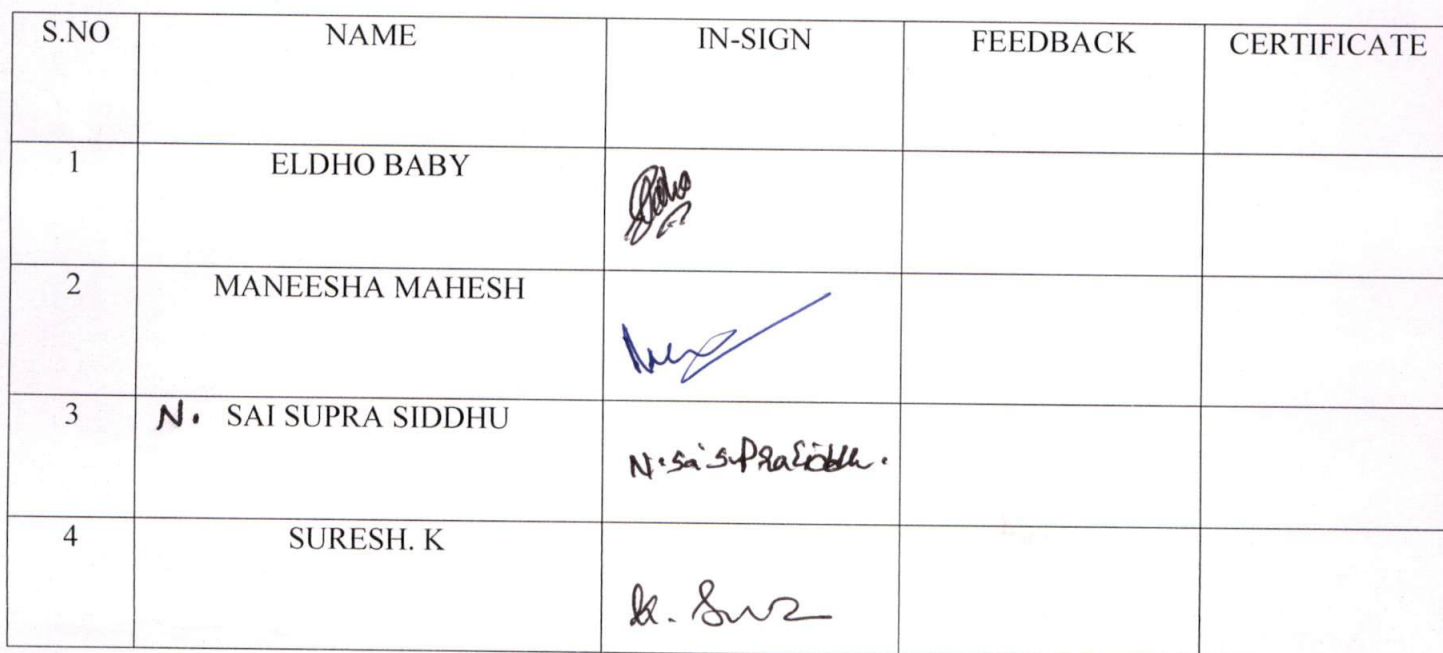 S.NO NAME IN-SIGN FEEDBACK CERTIFICATE
1 ELDHO BABY
2 MANEESHA MAHESH
3 N. SAI SUPRA SIDDHU
N. Sai Supra Siddhu.
4 SURESH. K
K. Sure